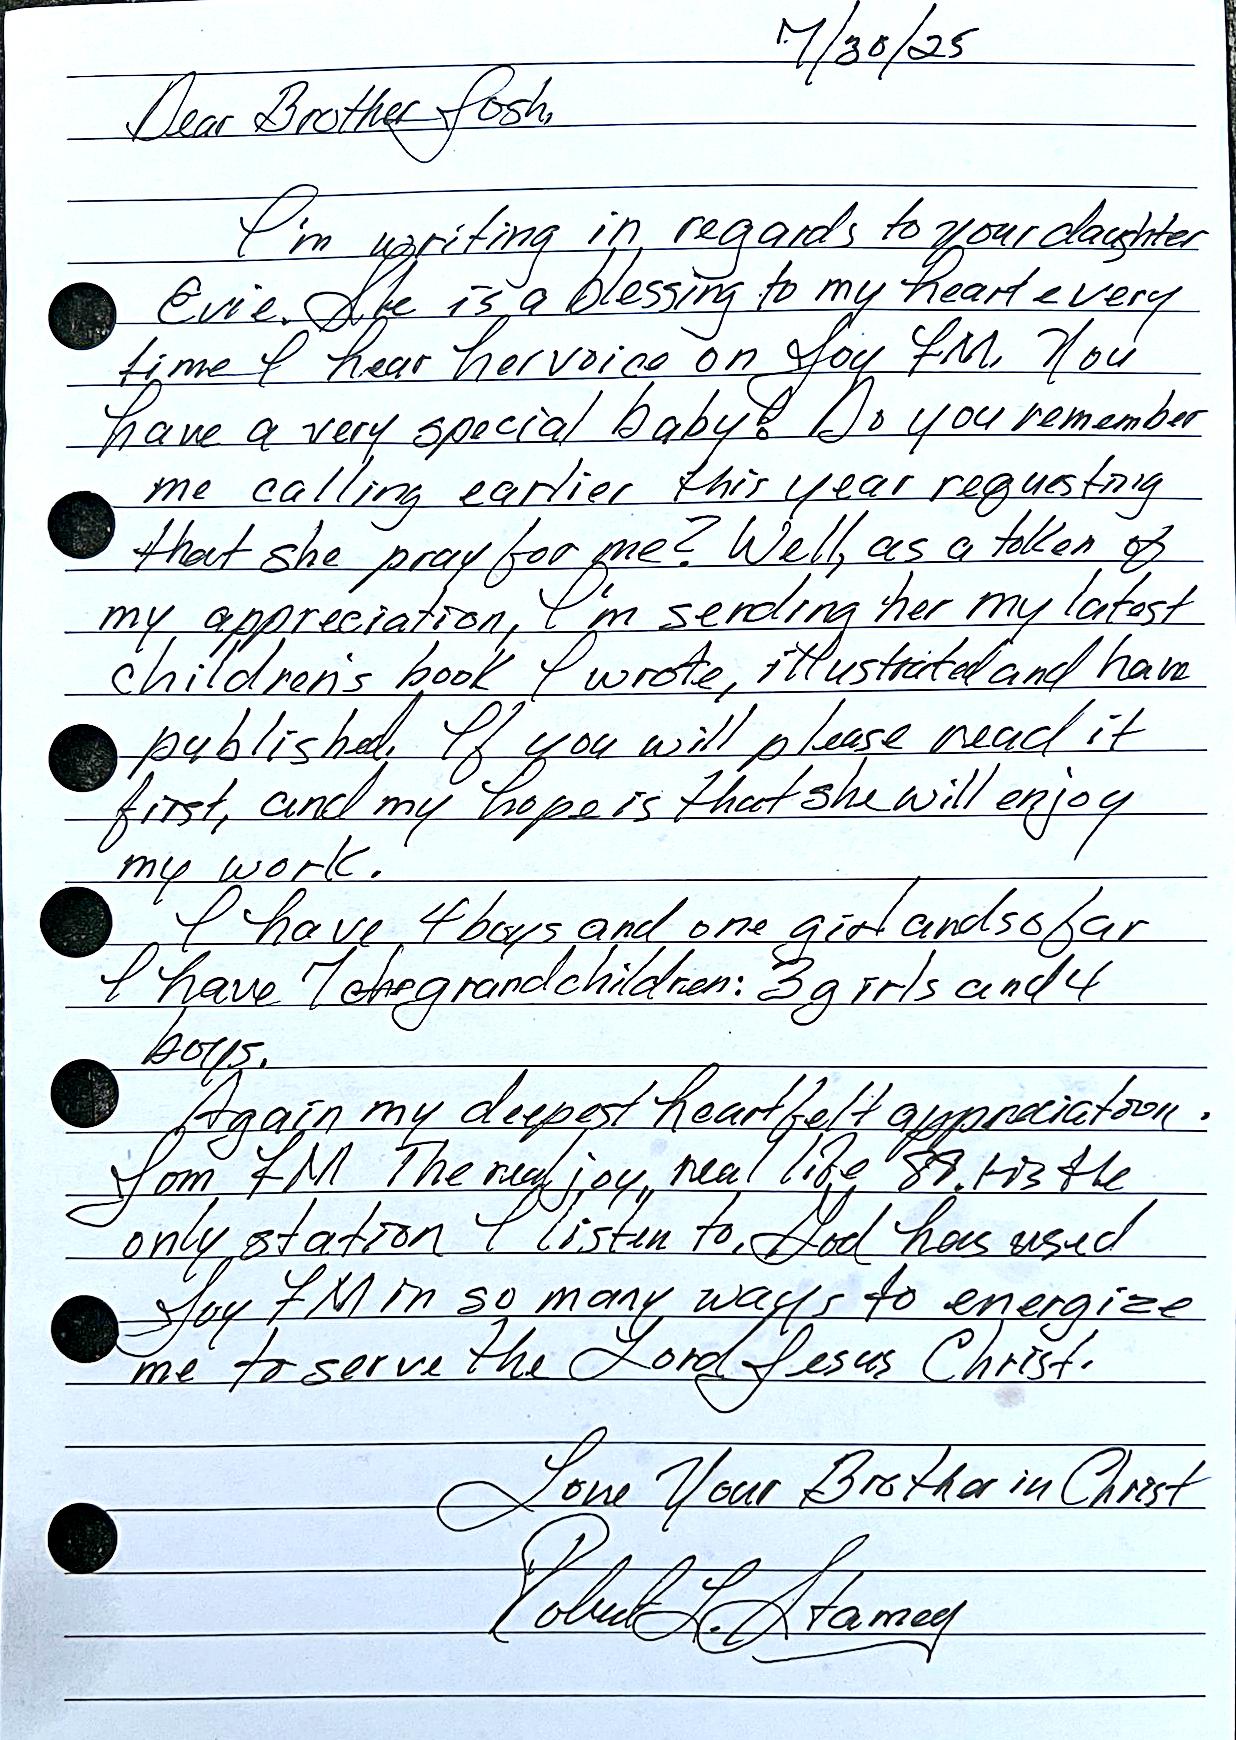 7/30/25
Dear Brother Josh,
I'm writing in regards to your daughter
Evie. She is a blessing to my heart every
time I hear her voice on Joy FM. You
have a very special baby! Do you remember
me calling earlier this year requesting
that she pray for me? Well, as a token of
my appreciation, I'm sending her my latest
children's book I wrote, illustrated and have
published. If you will please read it
first, and my hope is that she will enjoy
my work.
I have 4 boys and one girl and so far
I have 7 grandchildren: 3 girls and 4
boys.
Again my deepest heartfelt appreciation.
FM The real joy, real life 89.1 is the
only station I listen to. God has used
Joy FM in so many ways to energize
me to serve the Lord Jesus Christ.
Love Your Brother in Christ
Robert L. Stamey